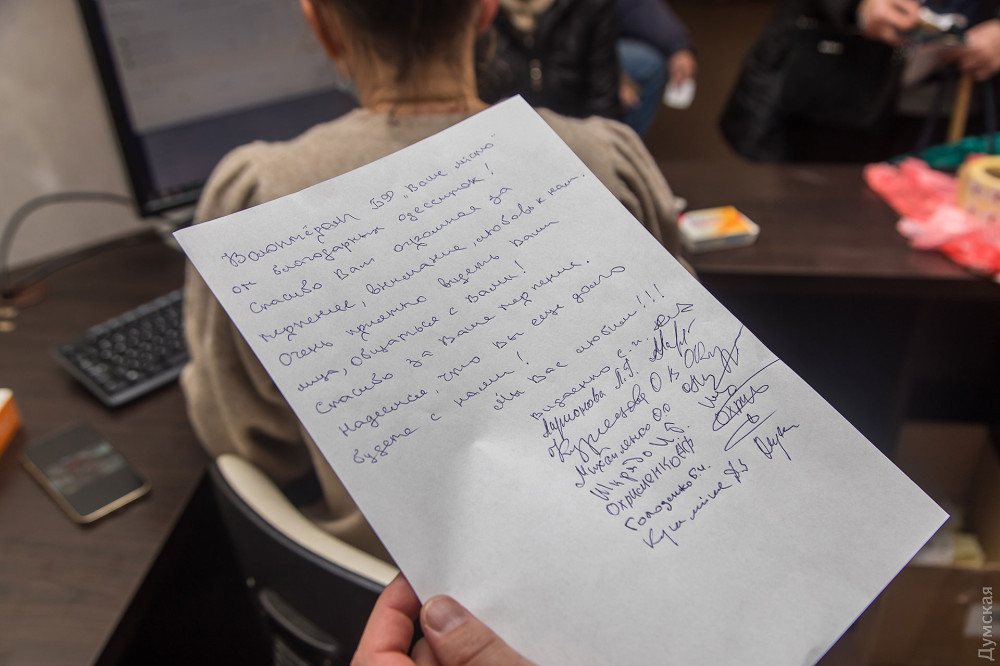 Волонтёрам БФ „Ваше місто"
от благодарных одесситок!
Спасибо Вам огромная за
терпение, внимание, любовь к нам.
Очень приятно видеть Ваши
лица, общаться с Вами!
Спасибо за Ваше терпение.
Надеемся, что Вы ещё долго
будете с нами!
Мы Вас любим!!!
С.И.
Ларионова Л.Г.
О.В.
Михайленко О.О.
Голоденко
Думская